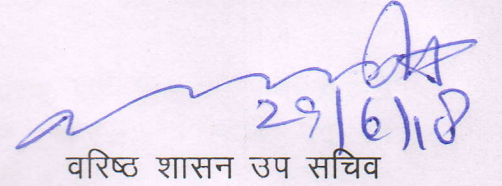 29/6/18
वरिष्ठ शासन उप सचिव